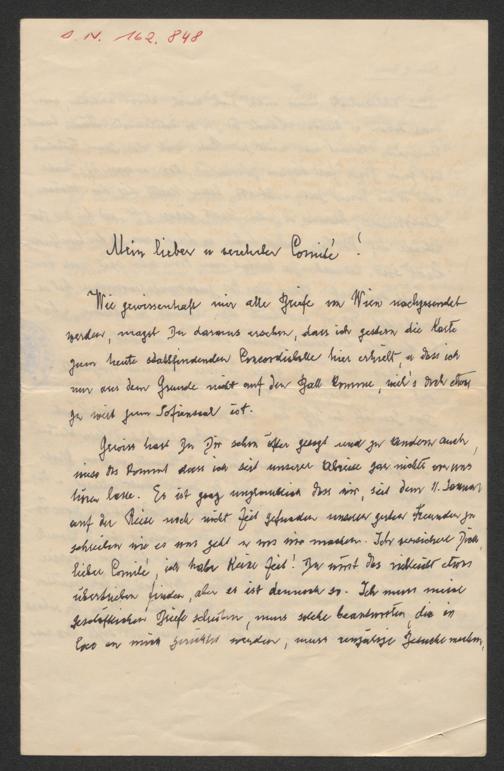 I. N. 162.848
Mein lieber u verehrter Comité!
Wie gewissenhaft mir alle Briefe von Wien nachgesendet
werden, magst Du daraus ersehen, dass ich gestern die Karte
zum heute stattfindenden Concordiaballe hier erhielt, u dass ich
nur aus dem Grunde nicht auf den Ball komme, weil's doch etwas
zu weit zum Sofiensaal ist.
Gewiss hast Du Dir schon öfter gesagt und zu Andern auch,
wieso das kommt dass ich seit unserer Abreise gar nichts von uns
hören lasse. Es ist ganz unglaublich dass wir, seit dem 11. Januar
auf der Reise noch nicht Zeit gefunden unseren guten Freunden zu
schreiben wie es uns geht u was wir machen. Ich versichere Dich,
lieber Comité, ich habe keine Zeit! Du wirst das vielleicht etwas
übertrieben finden, aber es ist dennoch so. Ich muss meine
geschäftlichen Briefe schreiben, muss solche beantworten, die in
loco an mich gerichtet werden, muss unzählige Besuche machen,